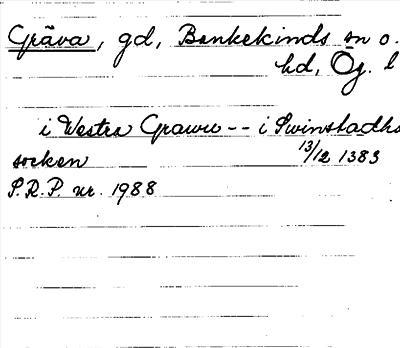 Gräva, gd, Bankekinds sn o.
hd, Ög. l
i Westra Grawu -- i Swinstadhs
socken 13/12 1383
S.R.P. nr. 1988